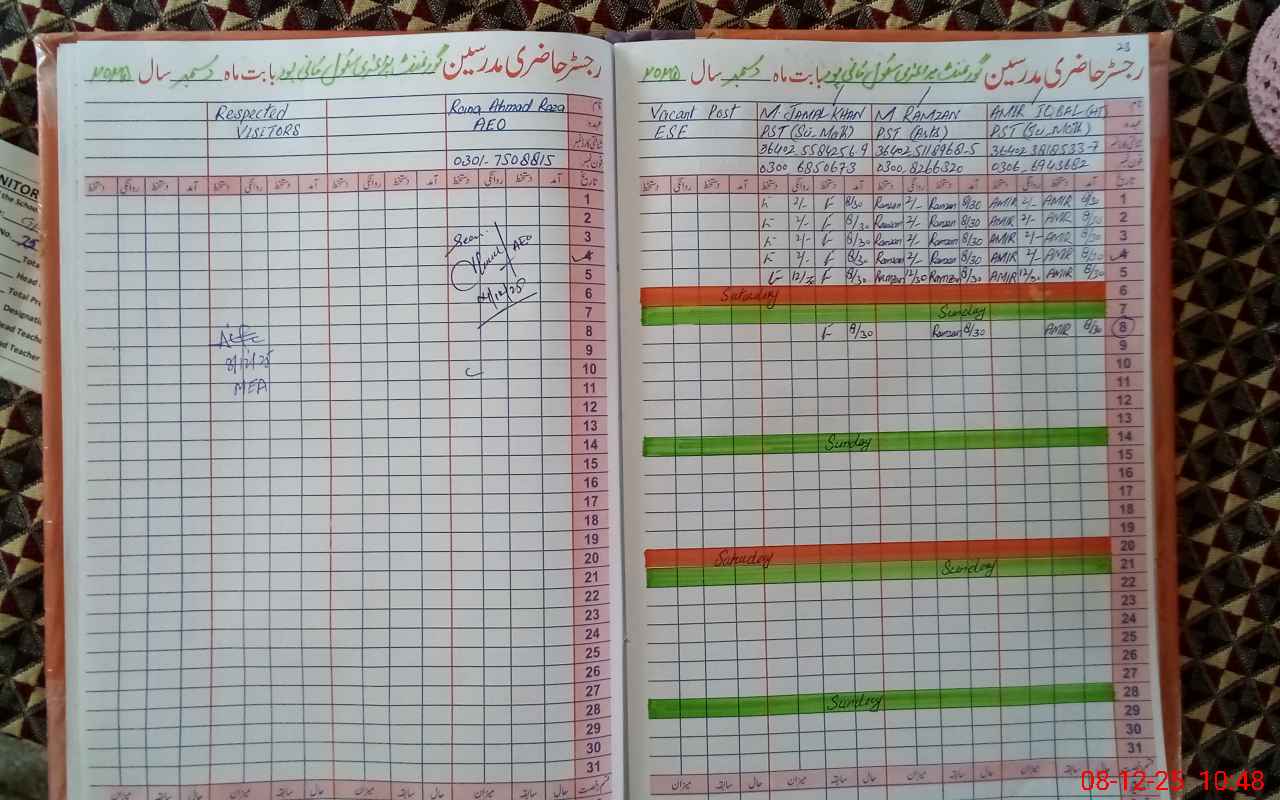 رجسٹر حاضری مدرسین گورنمنٹ پرائمری سکول بابت ماہ دسمبر سال ۲۰۲۵
Respected
VISITORS
Ahmad Raza
AEO
0301-7508815
نام
عہدہ
فون نمبر
تاریخ آمد دستخط روانگی دستخط آمد دستخط روانگی دستخط آمد دستخط روانگی دستخط آمد دستخط روانگی دستخط
1
2
3
4
5
6
7
8
9
10
11
12
13
14
15
16
17
18
19
20
21
22
23
24
25
26
27
28
29
30
31
Seen
AEO
8/12/25
MEA
حال سابقہ میزان حال سابقہ میزان حال سابقہ میزان حال سابقہ میزان
23
رجسٹر حاضری مدرسین گورنمنٹ پرائمری سکول بابت ماہ دسمبر سال ۲۰۲۵
Vacant Post M. JAMAL KHAN M. RAMZAN AMIR IQBAL (HT)
ESE PST (Sci-Math) PST (Arts) PST (Sci-Math)
36402 5584256-9 36402 5118968-5 36402 3818533-7
0300 6850673 0300 8266320 0306 6943682
نام
عہدہ
فون نمبر
تاریخ آمد دستخط روانگی دستخط آمد دستخط روانگی دستخط آمد دستخط روانگی دستخط آمد دستخط روانگی دستخط
2/- 8/30 Ramzan 2/- Ramzan 8/30 AMIR 2/- AMIR 8/30 1
2/- 8/30 Ramzan 2/- Ramzan 8/30 AMIR 2/- AMIR 8/30 2
2/- 8/30 Ramzan 2/- Ramzan 8/30 AMIR 2/- AMIR 8/30 3
2/- 8/30 Ramzan 2/- Ramzan 8/30 AMIR 2/- AMIR 8/30 4
8/30 Ramzan 12/30 Ramzan 8/30 AMIR 12/30 AMIR 8/30 5
Saturday 6
Sunday 7
8/30 Ramzan 8/30 AMIR 8/30 8
9
10
11
12
13
Sunday 14
15
16
17
18
19
Saturday 20
Sunday 21
22
23
24
25
26
27
Sunday 28
29
30
31
حال سابقہ میزان حال سابقہ میزان حال سابقہ میزان حال سابقہ میزان
NITOR
the School
No.
Head
Total Pre
Designatio
ead Teache
ead Teacher
08-12-25 10:48